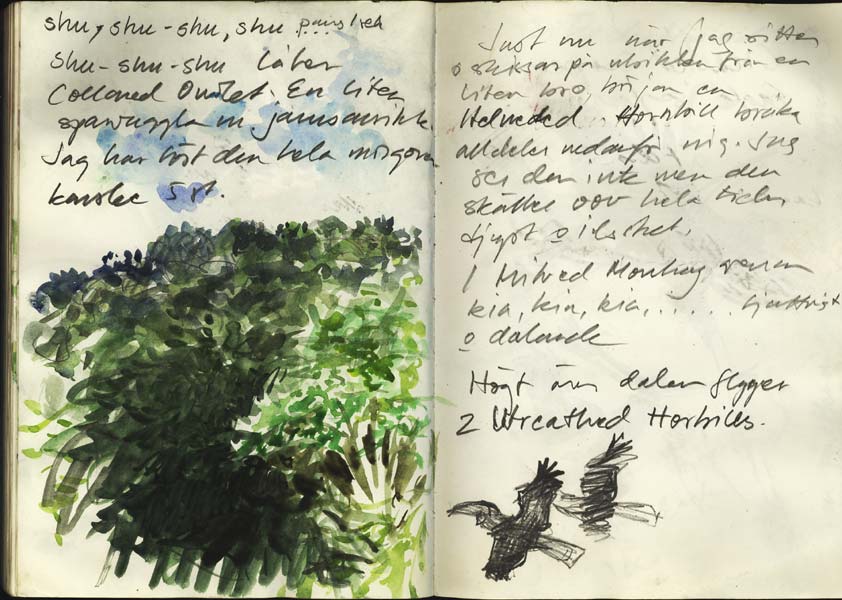 shu, shu - shu, shu paus och
shu-shu-shu låter
Collared Owlet. En liten
sparvuggla m jamsavikk.
Jag har hört den hela morgonen
kanske 5 st.
Just nu när jag sitter
o skissar på utsikten från en
liten bro, börjar en
Helmeted Hornbill
alldeles nedanför mig. Jag
ser den inte men den
skäller oov hela tiden
djupt o ilsket.
1 Mitred Monkey
kia, kia, kia, .....
o dalande
Högt över dalen flyger
2 Wreathed Horbills.